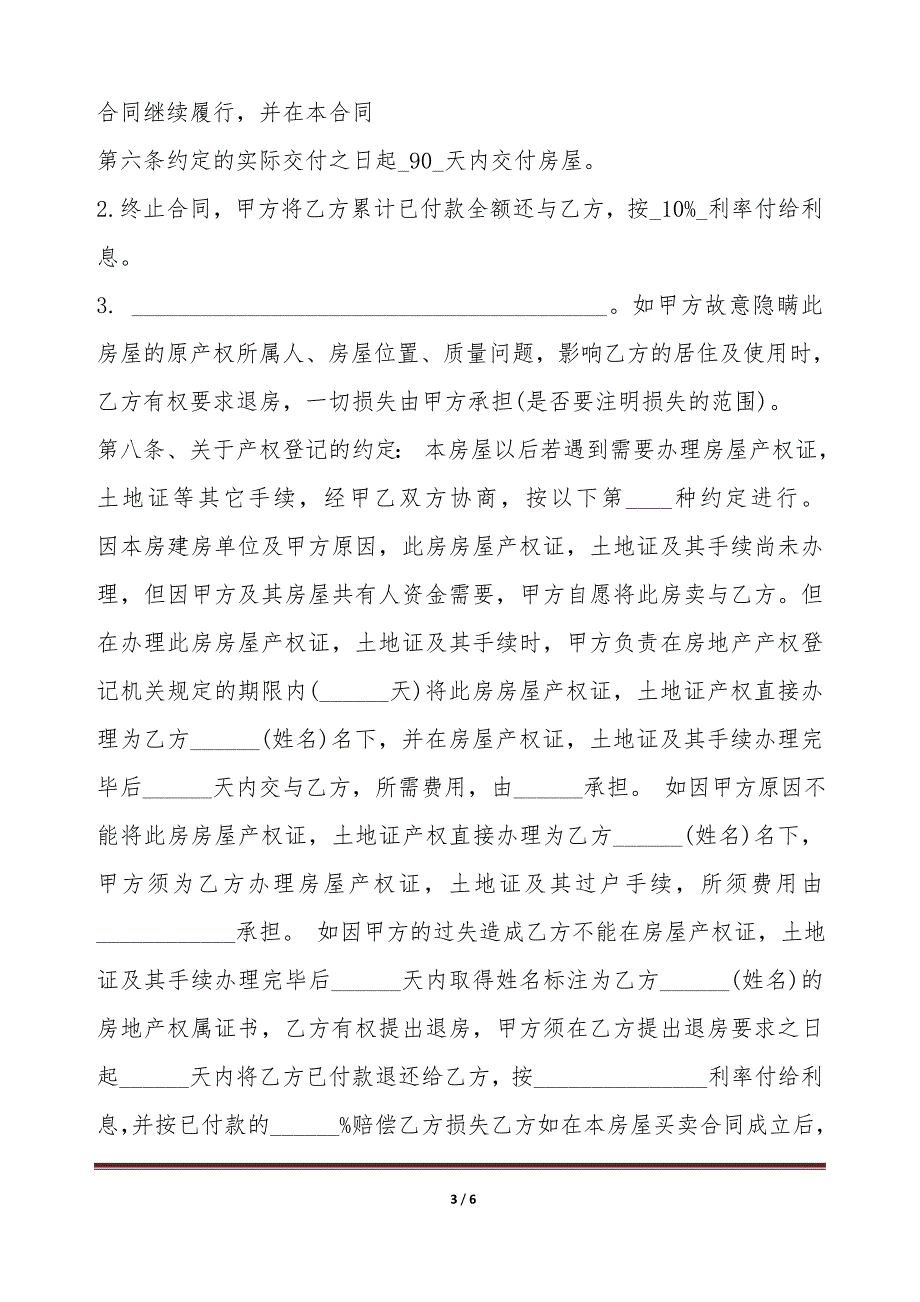 合同继续履行，并在本合同
第六条约定的实际交付之日起_90_天内交付房屋。
2.终止合同，甲方将乙方累计已付款全额还与乙方，按_10%_利率付给利
息。
3. _________________________________________。如甲方故意隐瞒此
房屋的原产权所属人、房屋位置、质量问题，影响乙方的居住及使用时，
乙方有权要求退房，一切损失由甲方承担(是否要注明损失的范围)。
第八条、关于产权登记的约定： 本房屋以后若遇到需要办理房屋产权证，
土地证等其它手续，经甲乙双方协商，按以下第____种约定进行。
因本房建房单位及甲方原因，此房房屋产权证，土地证及其手续尚未办
理，但因甲方及其房屋共有人资金需要，甲方自愿将此房卖与乙方。但
在办理此房房屋产权证，土地证及其手续时，甲方负责在房地产产权登
记机关规定的期限内(______天)将此房房屋产权证，土地证产权直接办
理为乙方______(姓名)名下，并在房屋产权证，土地证及其手续办理完
毕后______天内交与乙方，所需费用，由______承担。 如因甲方原因不
能将此房房屋产权证，土地证产权直接办理为乙方______(姓名)名下，
甲方须为乙方办理房屋产权证，土地证及其过户手续，所须费用由
____________承担。 如因甲方的过失造成乙方不能在房屋产权证，土地
证及其手续办理完毕后______天内取得姓名标注为乙方______(姓名)的
房地产权属证书，乙方有权提出退房，甲方须在乙方提出退房要求之日
起______天内将乙方已付款退还给乙方，按_______________利率付给利
息，并按已付款的______%赔偿乙方损失乙方如在本房屋买卖合同成立后，
3 / 6